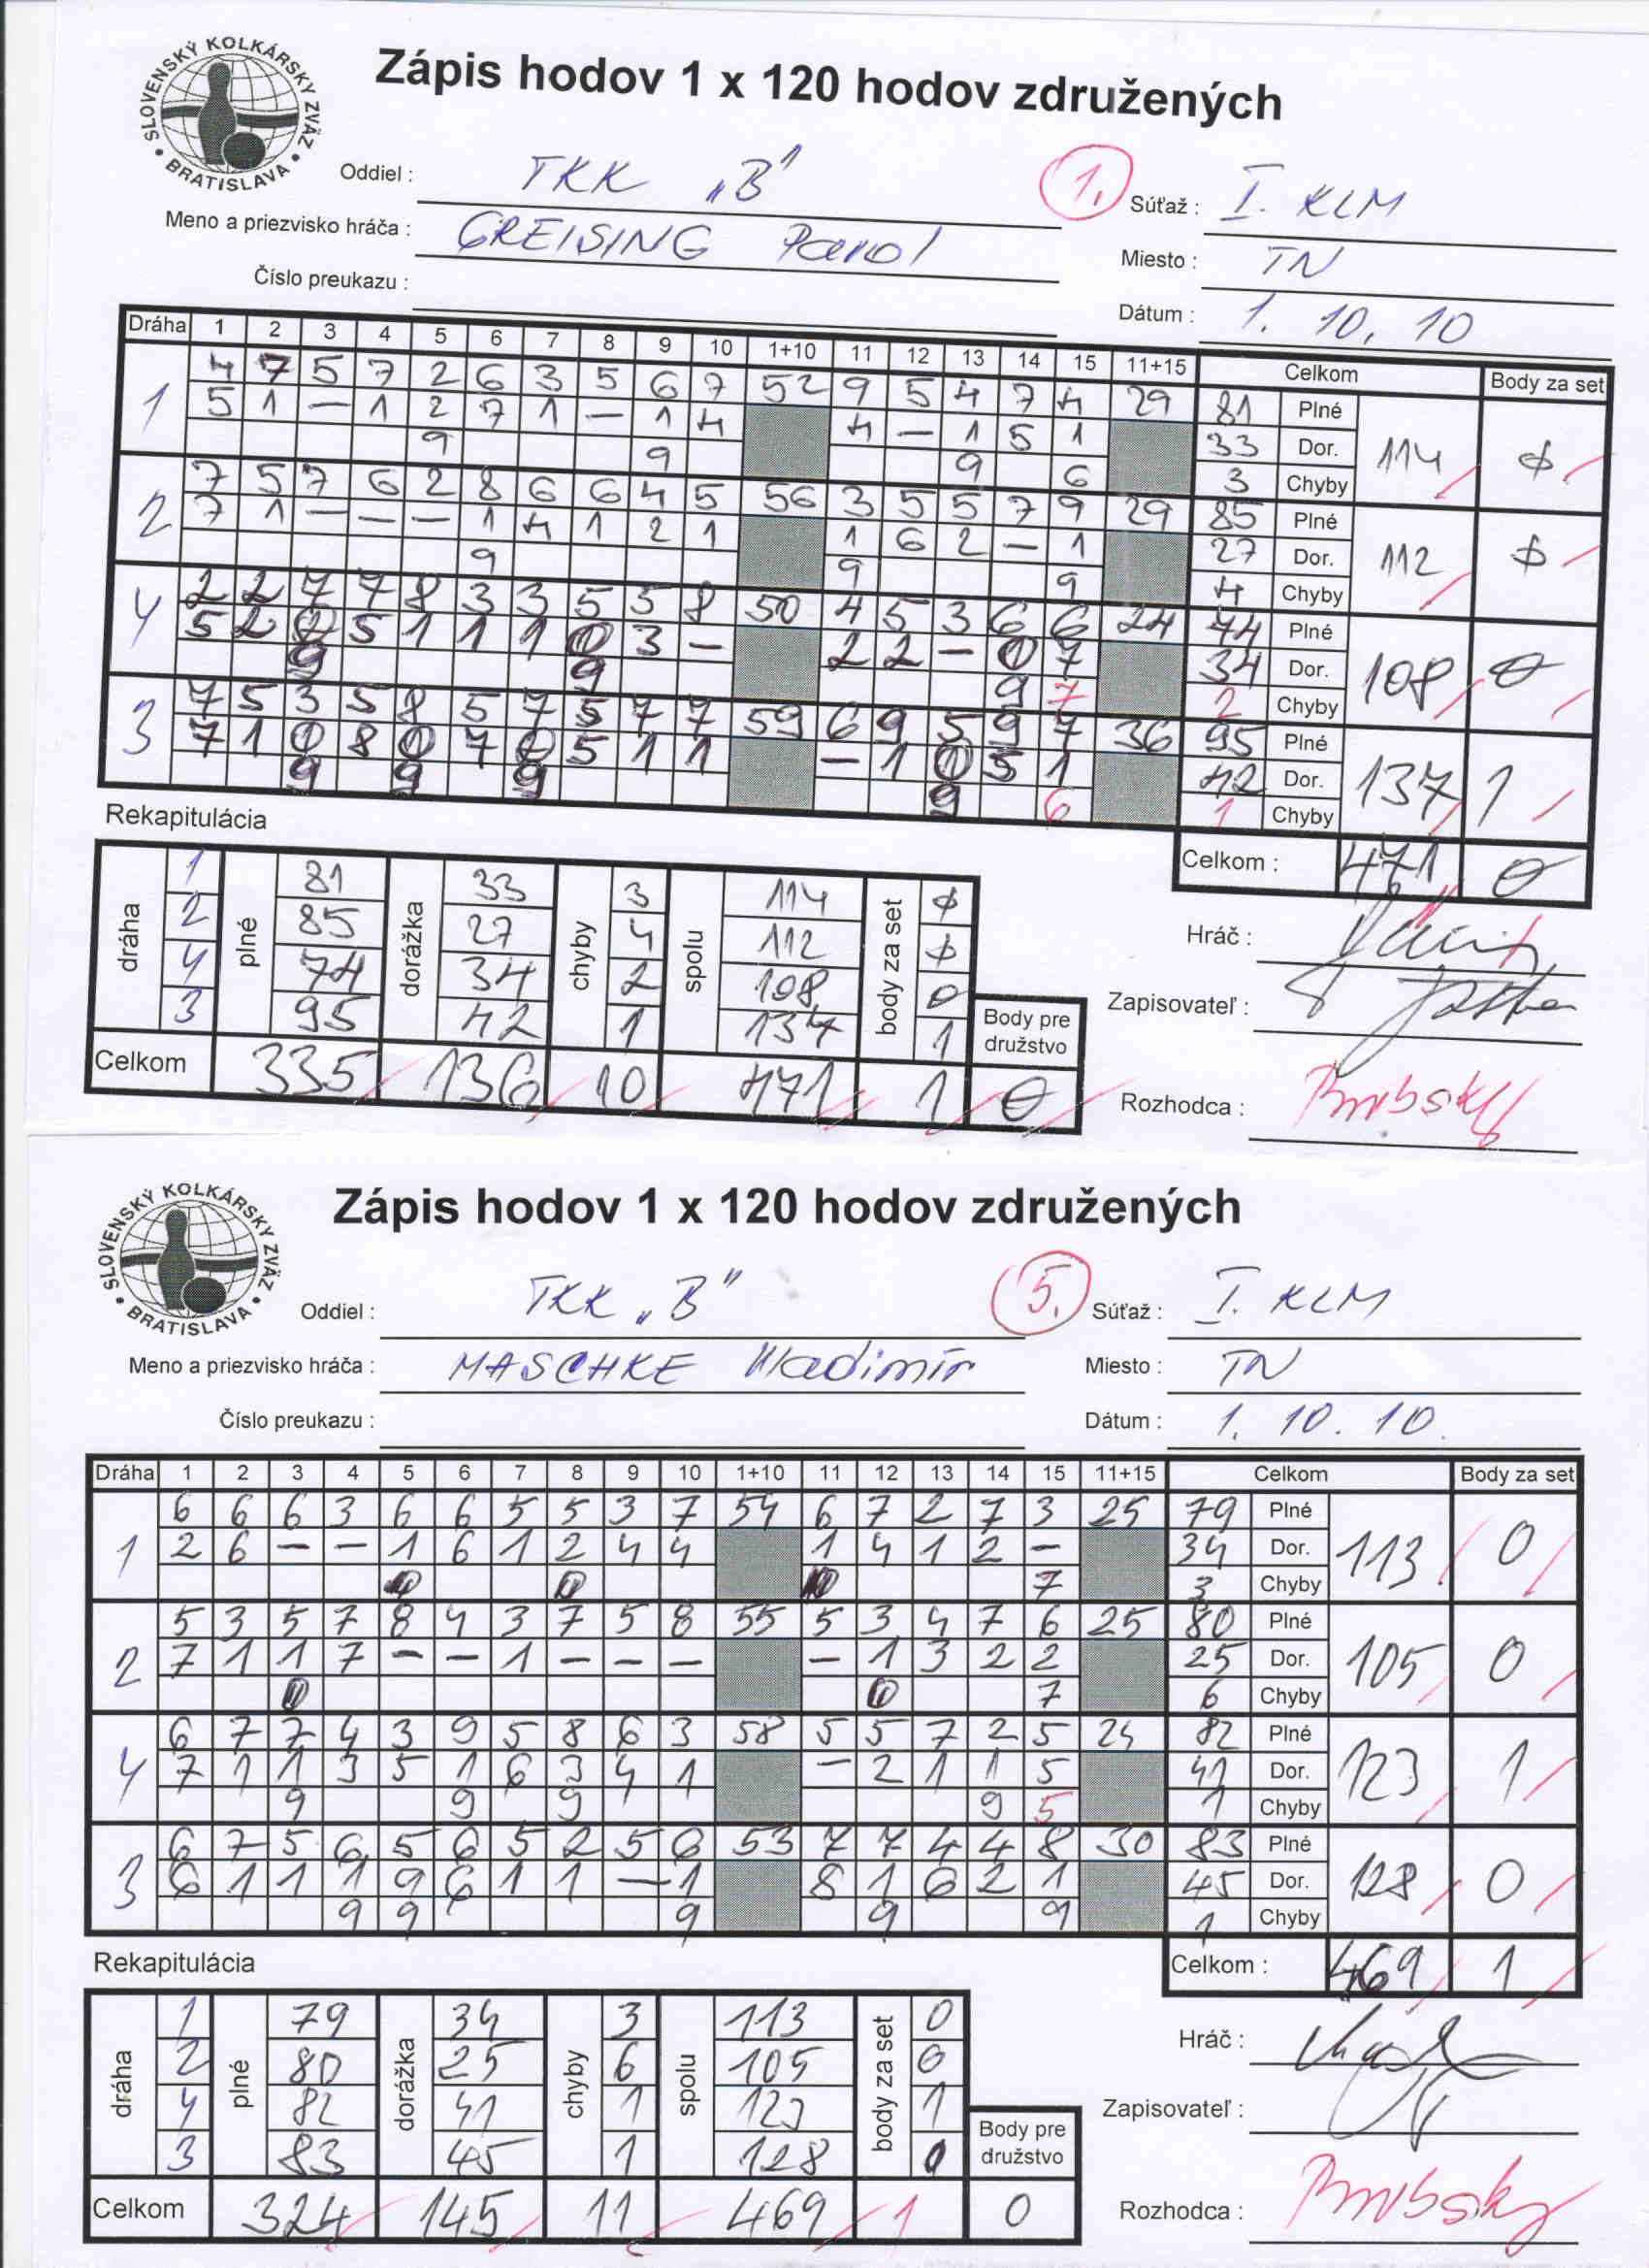 SLOVENSKÝ KOLKÁRSKY ZVÄZ • BRATISLAVA •
Zápis hodov 1 x 120 hodov združených
Oddiel : TKK „B" 1. Súťaž : I. KLM
Meno a priezvisko hráča : GREISING Pavol Miesto : TN
Číslo preukazu : Dátum : 1. 10. 10
Dráha 1 2 3 4 5 6 7 8 9 10 1+10 11 12 13 14 15 11+15 Celkom Body za set
1 4 7 5 7 2 6 3 5 6 7 52 9 5 4 7 4 29 81 Plné 114 0
5 1 — 1 2 7 1 — 1 4 4 — 1 5 1 33 Dor.
9 9 9 6 3 Chyby
2 7 5 7 6 2 8 6 6 4 5 56 3 5 5 7 9 29 85 Plné 112 0
7 1 — — — 1 4 1 2 1 1 6 2 — 1 27 Dor.
9 9 9 4 Chyby
4 2 2 7 7 8 3 3 5 5 8 50 4 5 3 6 6 24 74 Plné 108 0
5 2 0 5 1 1 1 0 3 — 2 2 — 0 7 34 Dor.
9 9 9 7 2 Chyby
3 7 5 3 5 8 5 7 5 7 7 59 6 9 5 9 7 36 95 Plné 137 1
7 1 0 8 0 7 0 5 1 1 — 1 0 5 1 42 Dor.
9 9 9 9 6 1 Chyby
Celkom : 471 0
Rekapitulácia
dráha 1 2 4 3
plné 81 85 74 95
dorážka 33 27 34 42
chyby 3 4 2 1
spolu 114 112 108 137
body za set 0 0 0 1
Body pre družstvo
Celkom 335 136 10 471 1 0
Hráč :
Zapisovateľ :
Rozhodca :
SLOVENSKÝ KOLKÁRSKY ZVÄZ • BRATISLAVA •
Zápis hodov 1 x 120 hodov združených
Oddiel : TKK „B" 5. Súťaž : I. KLM
Meno a priezvisko hráča : MASCHKE Vladimír Miesto : TN
Číslo preukazu : Dátum : 1. 10. 10.
Dráha 1 2 3 4 5 6 7 8 9 10 1+10 11 12 13 14 15 11+15 Celkom Body za set
1 6 6 6 3 6 6 5 5 3 7 54 6 7 2 7 3 25 79 Plné 113 0
2 6 — — 1 6 1 2 4 4 1 4 1 2 — 34 Dor.
0 0 0 7 3 Chyby
2 5 3 5 7 8 4 3 7 5 8 55 5 3 4 7 6 25 80 Plné 105 0
7 1 1 7 — — 1 — — — — 1 3 2 2 25 Dor.
0 0 7 6 Chyby
4 6 7 7 4 3 9 5 8 6 3 58 5 5 7 2 5 24 82 Plné 123 1
7 1 1 3 5 1 6 3 4 1 — 2 1 1 5 41 Dor.
9 9 9 9 5 1 Chyby
3 6 7 5 6 5 6 5 2 5 6 53 7 7 4 4 8 30 83 Plné 128 0
6 1 1 1 9 6 1 1 — 1 8 1 6 2 1 45 Dor.
9 9 9 9 9 1 Chyby
Celkom : 469 1
Rekapitulácia
dráha 1 2 4 3
plné 79 80 82 83
dorážka 34 25 41 45
chyby 3 6 1 1
spolu 113 105 123 128
body za set 0 0 1 0
Body pre družstvo
Celkom 324 145 11 469 1 0
Hráč :
Zapisovateľ :
Rozhodca :